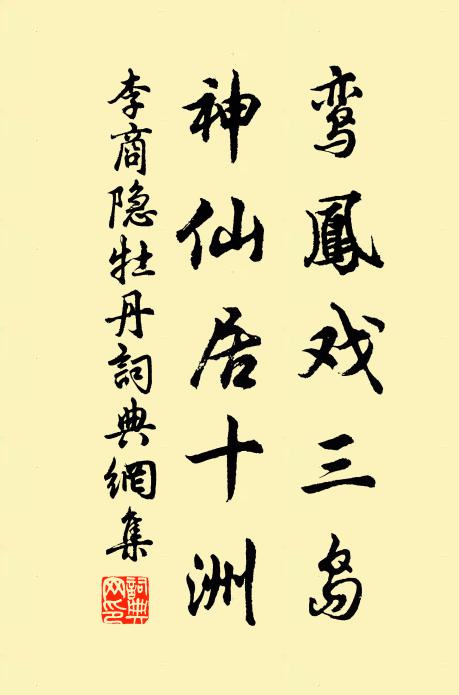 鸾鳳戏三岛
神仙居十洲
李商隐牡丹詞典網集
詞典网印